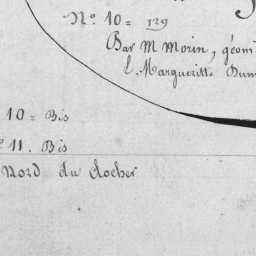 N.o 10 = 129
Par M Morin, géom
l. Margueritte Dum
10 = Bis
11. Bis
Nord du clocher